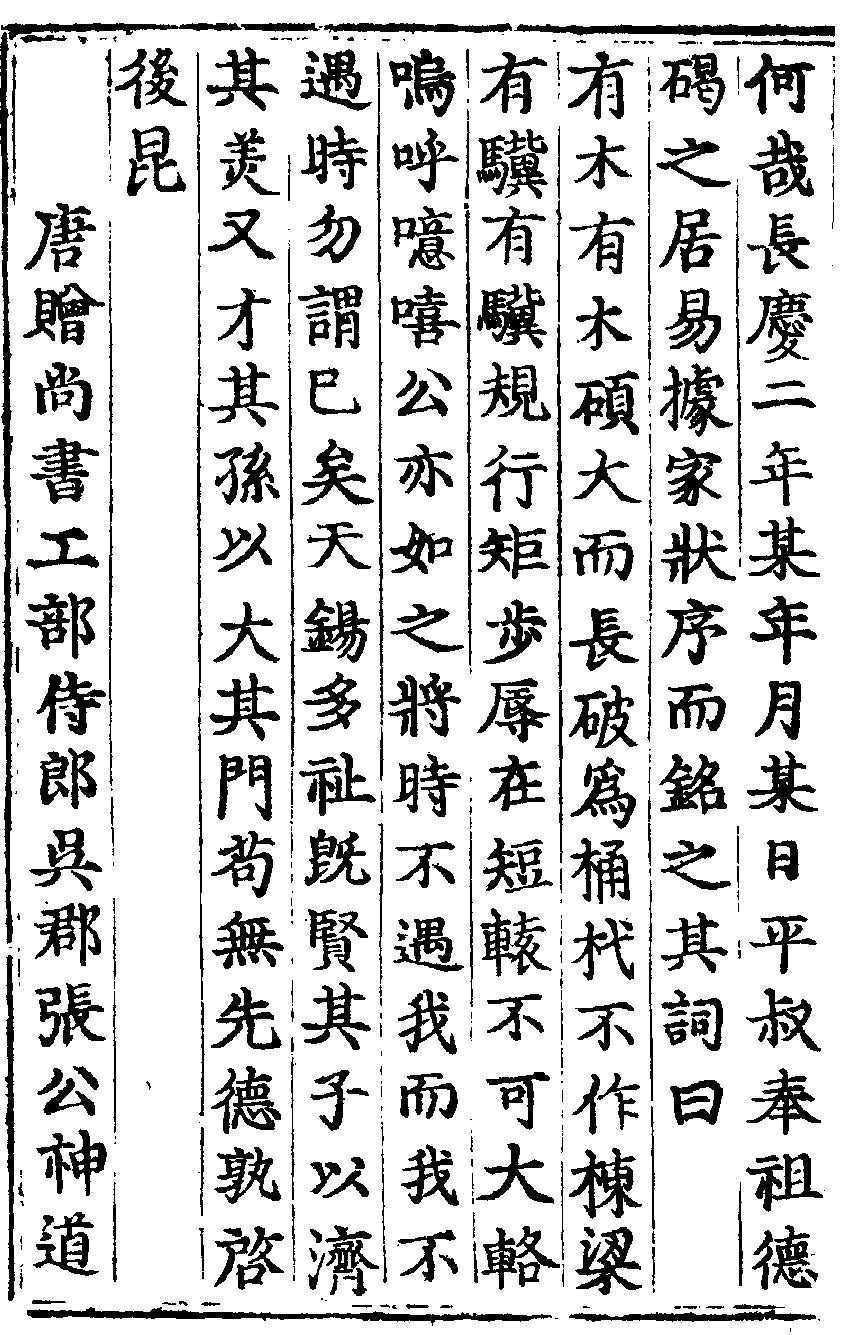 何哉長慶二年某年月某日平叔奉祖德
碣之居易據家狀序而銘之其詞曰
有木有木碩大而長破爲桶杙不作棟梁
有驥有驥規行矩步辱在短轅不可大輅
嗚呼噫嘻公亦如之將時不遇我而我不
遇時勿謂已矣天錫多祉旣賢其子以濟
其羙又才其孫以大其門苟無先德孰啓
後昆
唐贈尚書工部侍郎吳郡張公神道